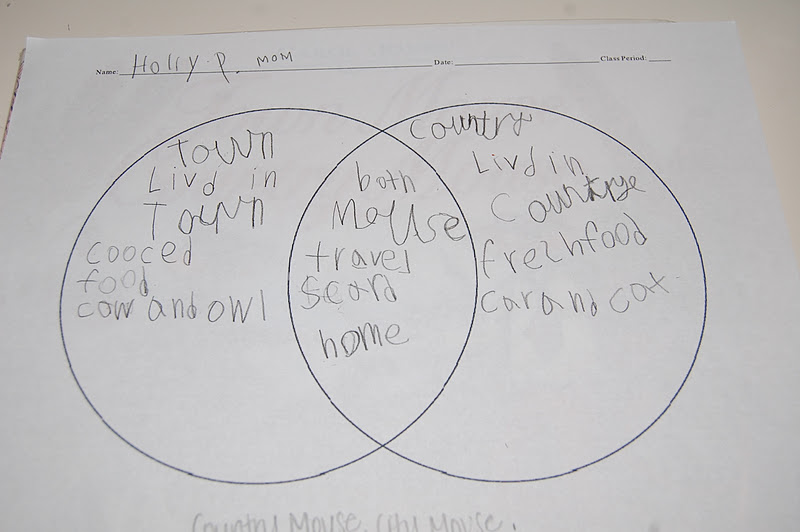 Name: Holly P. MOM Date: Class Period:
Town
Livd in
Town
cooced
food
cow and owl
both
Mouse
travel
Scard
home
Country
Livd in
Countrye
freshfood
car and cat
Country Mouse, City Mouse.